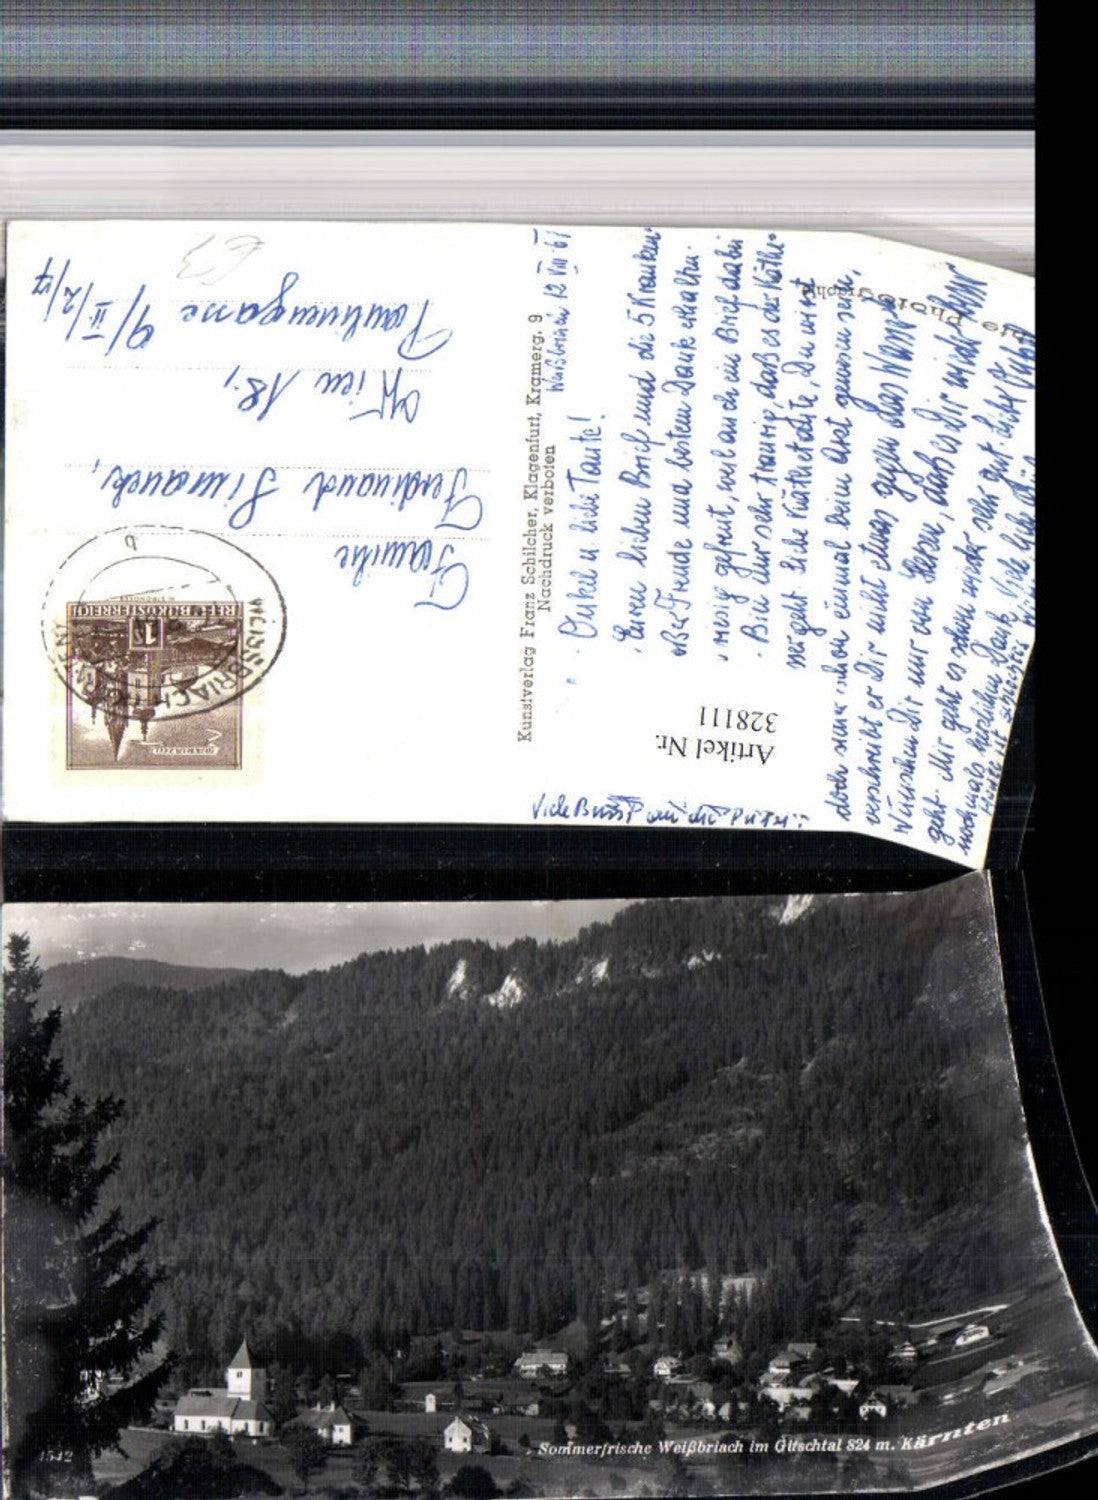 Weißbriach 12 VIII 61
Onkel u liebe Tante!
Euren lieben Brief und die 5 Kranken
Freude und besten Dank erhalten.
riesig gefreut, weil auch ein Brief dabei
Bin nur sehr traurig, daß es der Käthe
geht. Liebe Käthetante, Du wirst
doch schon einmal beim Arzt gewesen sein,
verschreibt er Dir nicht etwas gegen das Wasser
Wünschen Dir nur vom Herzen, daß es Dir wieder
geht. Mir geht es schon wieder sehr gut
nochmals herzlichen Dank Viele liebe
Viele Bussi
Kunstverlag Franz Schilcher, Klagenfurt, Kramerg. 9
Nachdruck verboten
Familie
Ferdinand
Wien 18.,
Paulinengasse 9/II/2/17
63
REPUBLIK ÖSTERREICH
1
WEISSBRIACH
b
Artikel Nr.
328111
1542
Sommerfrische Weißbriach im Gitschtal 824 m. Kärnten